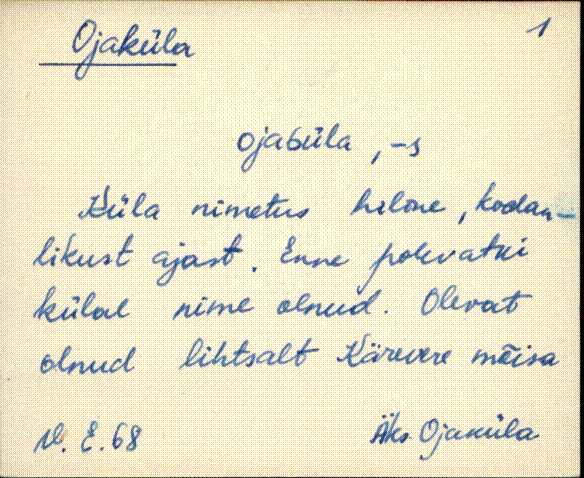 Ojaküla 1
ojaɢüla, -s
Küla nimetus hilone, kodan-
likust ajast. Enne polevatki
külal nime olnud. Olevat
olnud lihtsalt Kärevere mõisa
V. E. 68 Äks Ojaküla